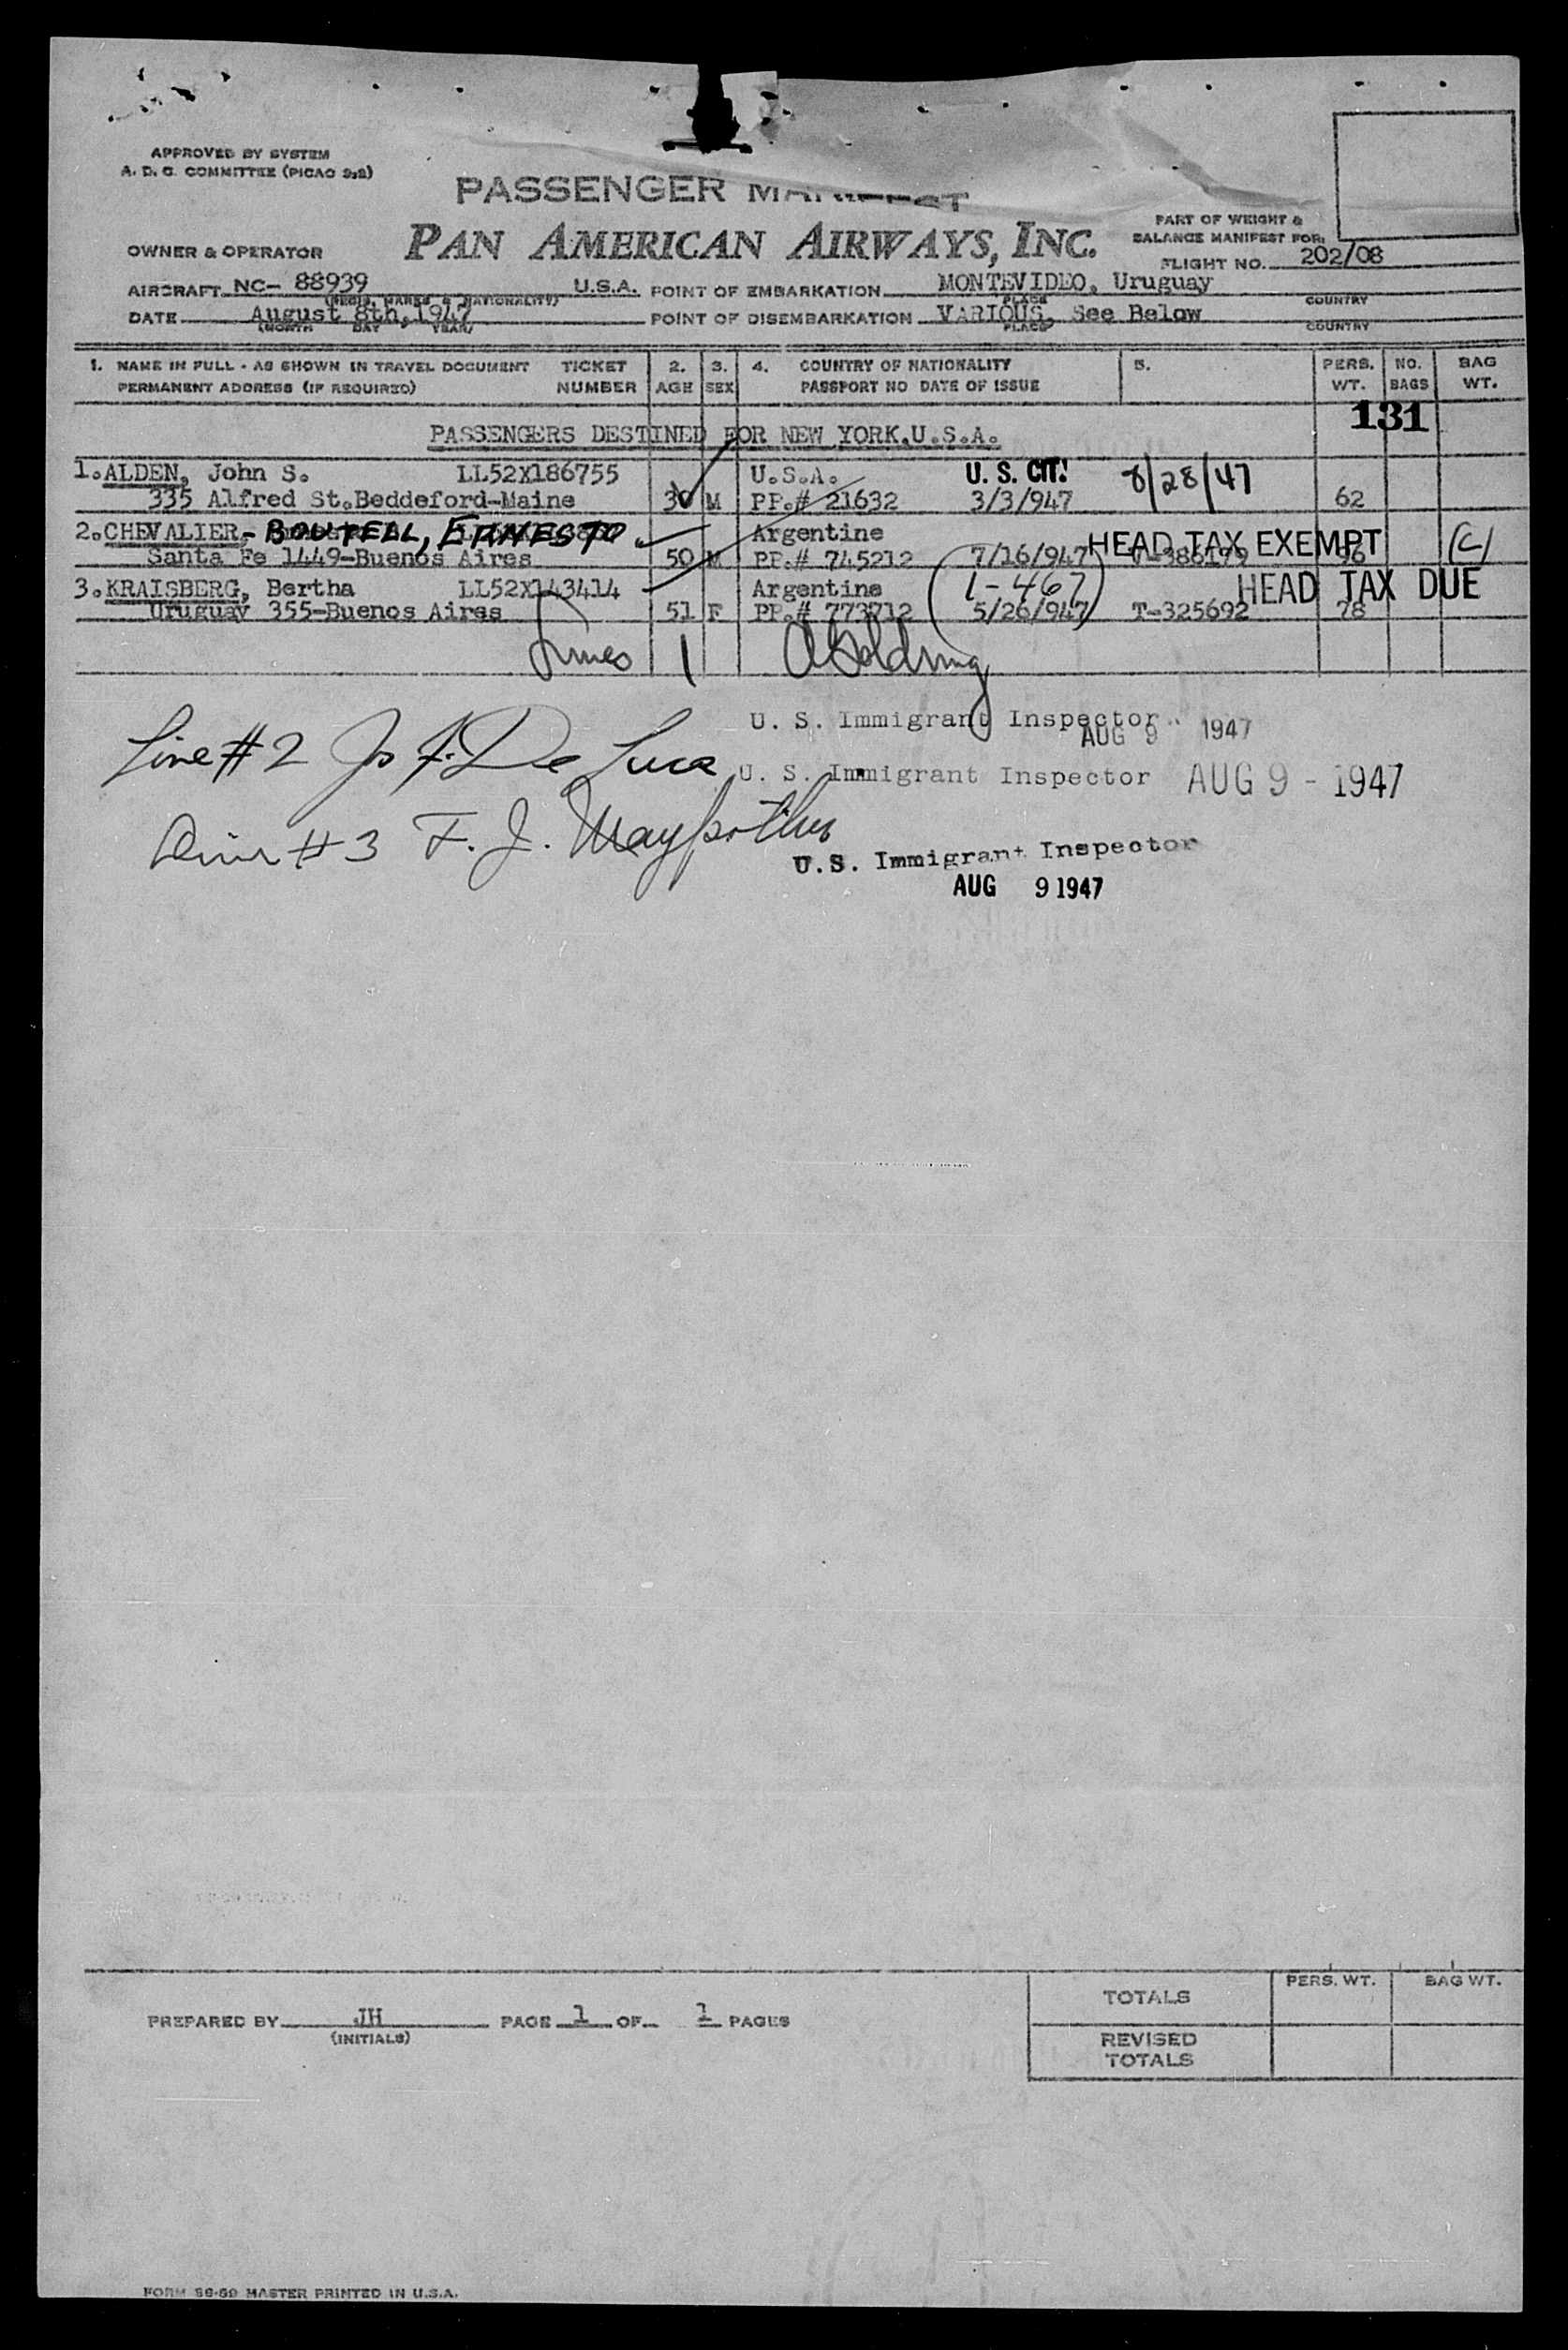 APPROVED BY SYSTEM
A. D. C. COMMITTEE (PICAO 2,2)
PASSENGER MANIFEST
PAN AMERICAN AIRWAYS, INC.
PART OF WEIGHT &
BALANCE MANIFEST FOR:
FLIGHT NO. 202/08
OWNER & OPERATOR
AIRCRAFT NC- 88939 U.S.A. POINT OF EMBARKATION MONTEVIDEO, Uruguay
(REGIS. MARKS & NATIONALITY) PLACE COUNTRY
DATE August 8th, 1947 POINT OF DISEMBARKATION VARIOUS, See Below
(MONTH DAY YEAR) PLACE COUNTRY
1. NAME IN FULL - AS SHOWN IN TRAVEL DOCUMENT TICKET 2. 3. 4. COUNTRY OF NATIONALITY 5. PERS. NO. BAG
PERMANENT ADDRESS (IF REQUIRED) NUMBER AGE SEX PASSPORT NO DATE OF ISSUE WT. BAGS WT.
131
PASSENGERS DESTINED FOR NEW YORK,U.S.A.
1.ALDEN, John S. LL52X186755 U.S.A. U. S. CIT. 8/28/47
335 Alfred St.Beddeford-Maine 30 M PP.# 21632 3/3/947 62
2.CHEVALIER- BOUTELL, ERNESTO Argentine HEAD TAX EXEMPT (C)
Santa Fe 1449-Buenos Aires 50 M PP.# 745212 7/16/947 96
3.KRAISBERG, Bertha LL52X143414 Argentine (1-467) HEAD TAX DUE
Uruguay 355-Buenos Aires 51 F PP.# 773712 5/26/947 T-325692 78
Lines 1 A Goldring
U. S. Immigrant Inspector AUG 9 1947
Line #2 Jo F. De Luca U. S. Immigrant Inspector AUG 9 - 1947
#3 F. J.
U.S. Immigrant Inspector
AUG 9 1947
TOTALS PERS. WT. BAG WT.
PREPARED BY JH PAGE 1 OF 1 PAGES
(INITIALS)
REVISED
TOTALS
FORM 56-59 MASTER PRINTED IN U.S.A.